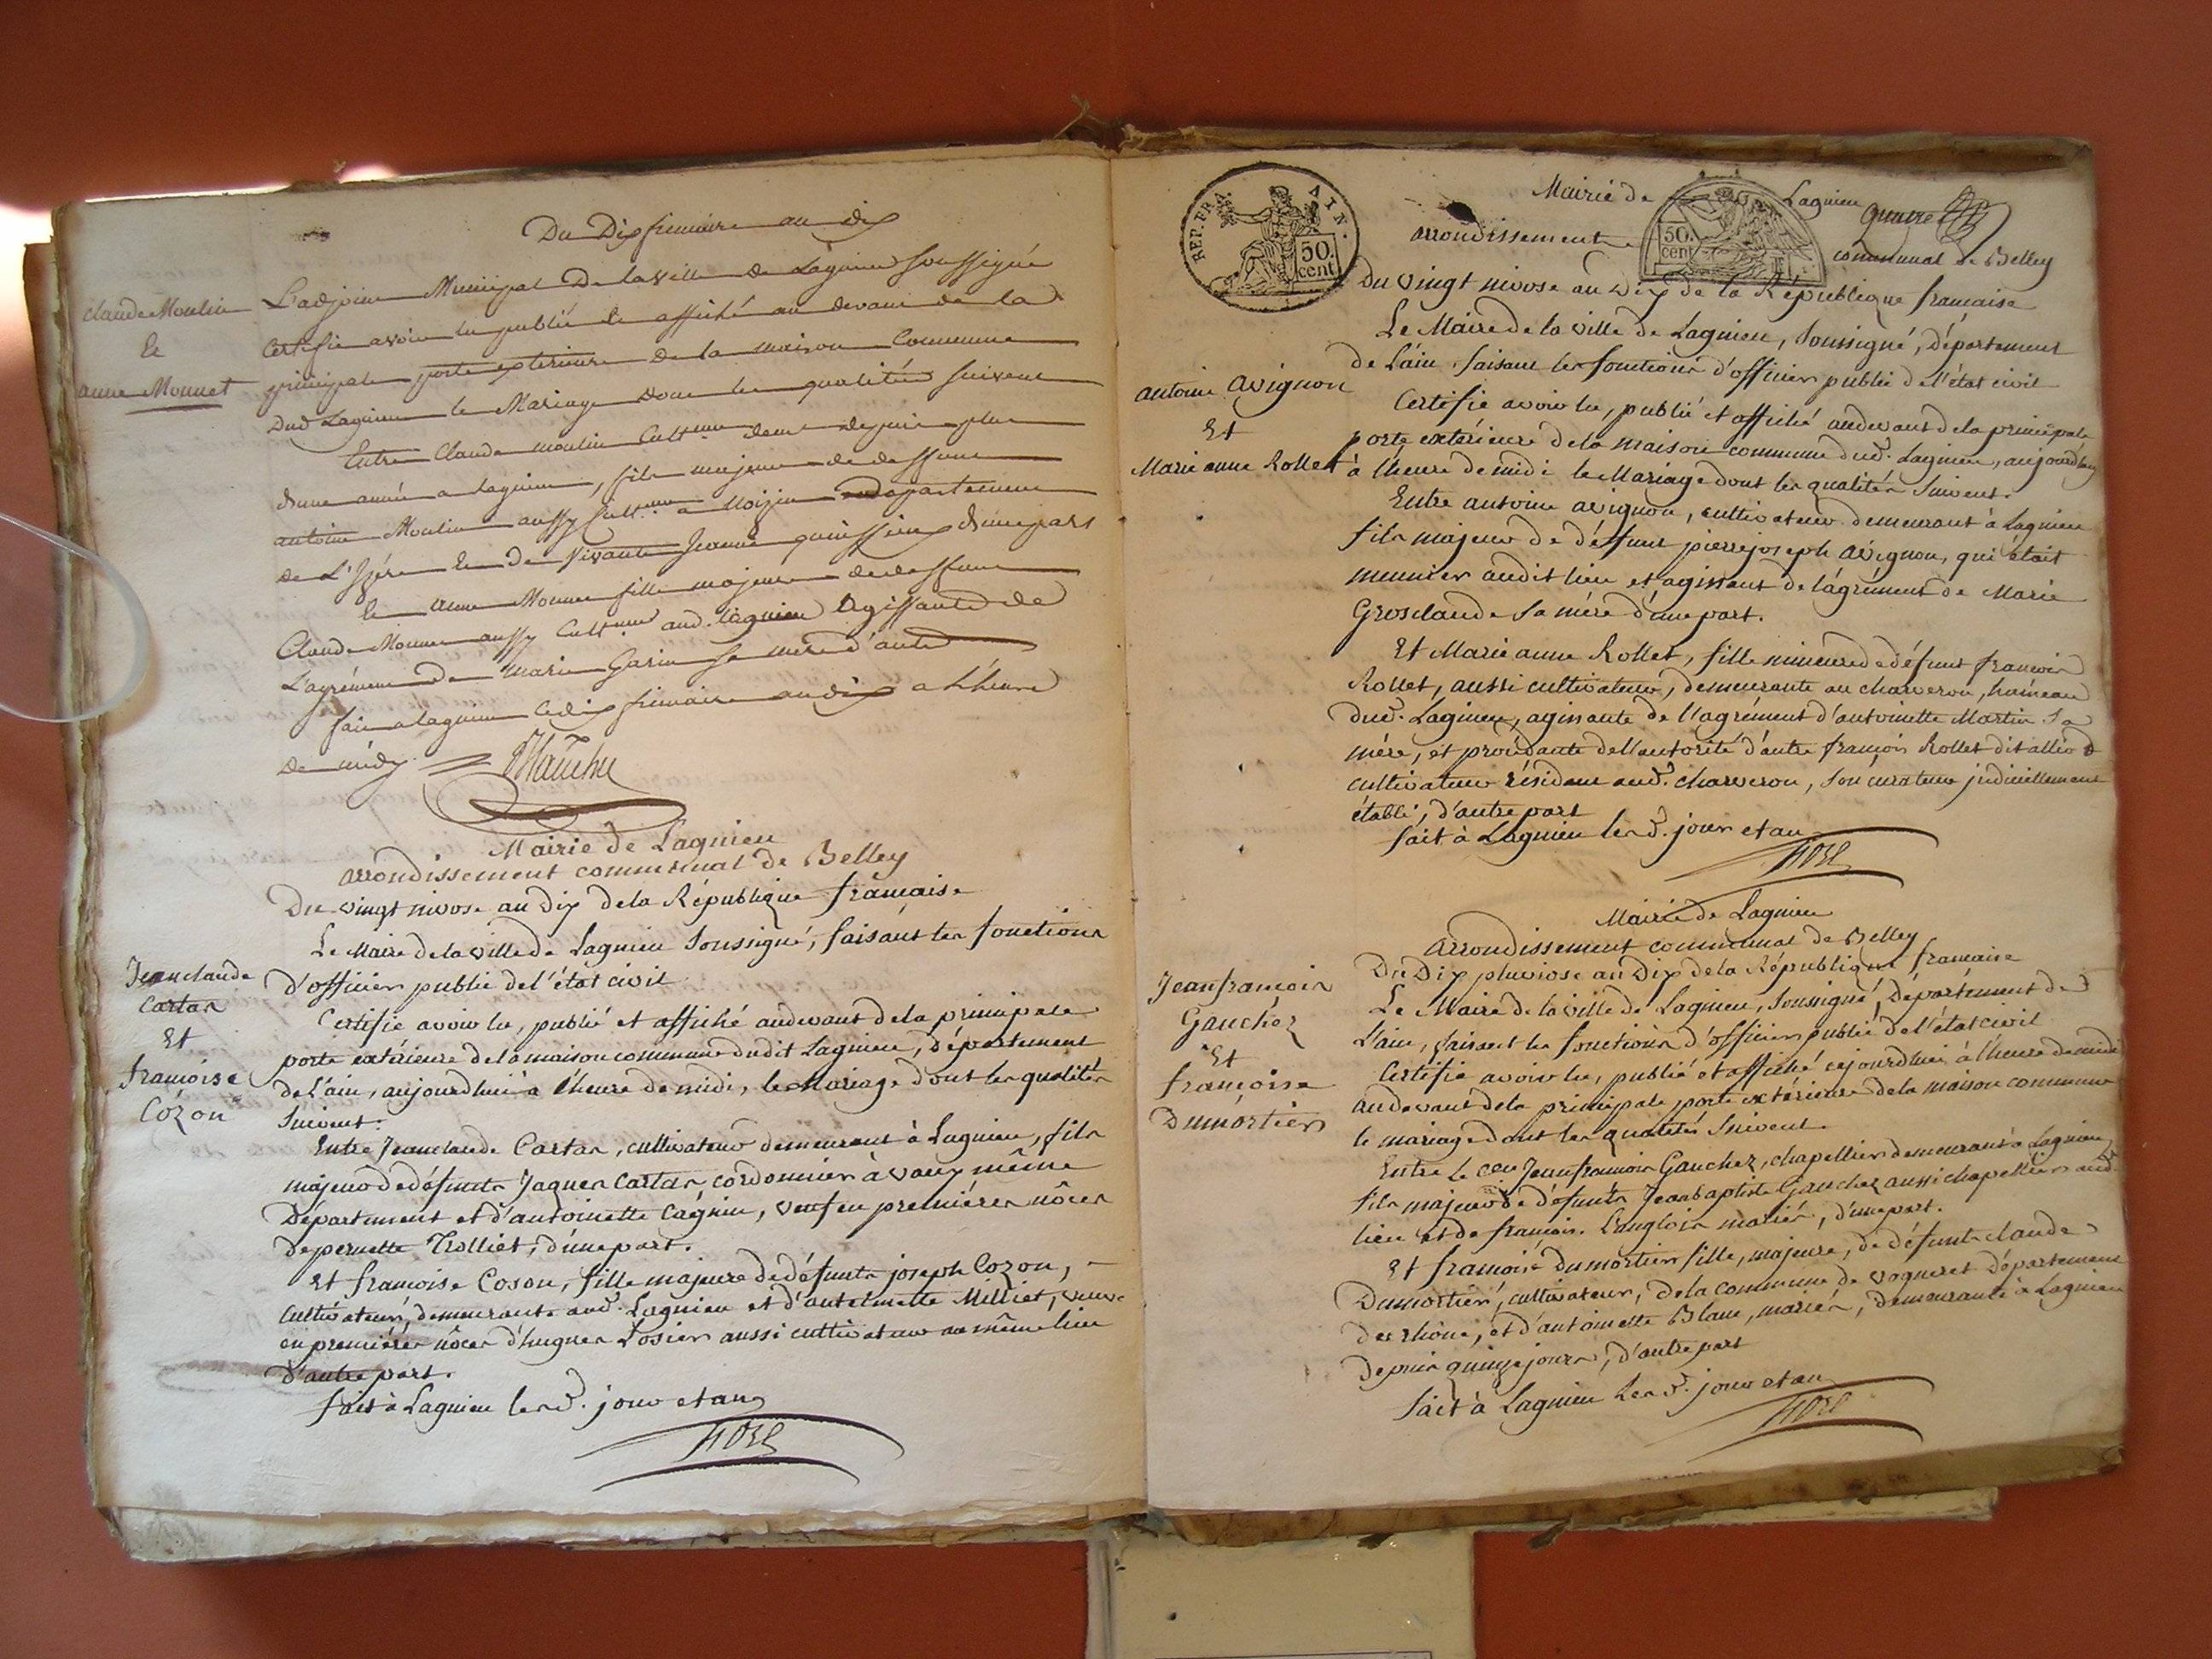 Du Dix frimaire an dix
claude Moulin
Et
anne Monnet
L'adjoint Municipal De la ville de Lagnieu soussigné
Certifie avoir lu publié et affiché au devant de la
principale porte exterieure de la maison Commune
Dud Lagnieu le Mariage dont les qualités suivent
Entre Claude moulin Cult.eur demt depuis plus
d'une année a lagnieu, fils majeur de deffunt
antoine Moulin aussy Cult.eur a departement
de L'Izére et De vivante Jeanne d'une part
Et anne Monnet fille majeure de deffunt
Claude Monnet aussy Cult.eur aud. lagnieu Agissante de
L'agrément De marie Garin sa mere d'autre
fait a lagnieu le dix frimaire an dix a L'heure
de midy
Mairie de Lagnieu
arrondissement communal de Belley
Du vingt nivose an dix de la République française
Jeanclaude
Cartar
Et
françoise
Cozon
Le Maire de la ville de Lagnieu soussigné, faisant les fonctions
d'officier public de l'état civil
Certifie avoir lu, publié et affiché audevant de la principale
porte extérieure de la maison commune dudit Lagnieu, département
de l'ain, aujourdhui à l'heure de midi, le Mariage dont les qualités
suivent.
Entre Jeanclaude Cartar, cultivateur demeurant à Lagnieu, fils
majeur de défunts Jaques Cartar cordonnier à vaux même
Département et d'antoinette Cagnin, veuf en premiéres nôces
de pernette Trolliet, d'une part.
Et francoise Coson, fille majeure de défunts joseph Cozon,
cultivateur, demeurante aud. Lagnieu et d'antelmette Milliet, veuve
en premiéres nôces d'hugues Losier aussi cultivateur au même lieu
d'autre part.
fait à Lagnieu les d. jour et an
REP. FRA. AIN.
50.
cent
50.
cent
Mairie de Lagnieu
quatre
arrondissement communal de Belley
Du vingt nivose an Dix de la République française
Le Maire de la ville de Lagnieu, soussigné, département
de l'ain faisant les fonctions d'officier public de l'état civil
antoine avignon
Et
Marie anne Rollet
Certifie avoir lu, publié et affiché audevant de la principale
porte extérieure de la maison commune dud. Lagnieu, aujourd'hui
à l'heure de midi le Mariage dont les qualités suivent.
Entre antoine avignon, cultivateur demeurant à Lagnieu
fils majeur de défunt pierre joseph avignon, qui était
meunier audit lieu et agissant de l'agrément de Marie
Grosclaude sa mére d'une part.
Et Marie anne Rollet, fille mineure de défunt francois
Rollet, aussi cultivateur, demeurante au charveron, hameau
dud. Lagnieu, agissante de l'agrément d'antoinette Martin sa
mére, et procédante de l'autorité d'autre françois Rollet dit allio
cultivateur résidant aud. charveron, son curateur judiciellement
établi, d'autre part
fait à Lagnieu les d. jour et an
Mairie de Lagnieu
arrondissement communal de Belley
Du Dix pluviose an Dix de la République francaise
Jeanfrançois
Gauchez
Et
françoise
Dumortier
Le Maire de la ville de Lagnieu, soussigné, Département de
l'ain, faisant les fonctions d'officier public de l'état civil
Certifie avoir lu, publié et affiché cejourdhui à l'heure de midi
au devant de la principale porte extérieure de la maison commune
le mariage dont les qualités suivent.
Entre le ceu. Jeanfrancois Gauchez, chapellier demeurant à Lagnieu
fils majeur de défunts Jeanbaptiste Gauchez aussi chapellier aud.
lieu et de francoise Langlois mariés, d'une part.
Et francoise dumortier fille, majeure, de défunts claude
Dumortier, cultivateur, de la commune de vogneret département
du rhône, et d'antoinette Blanc, mariés, demeurante à Lagnieu
depuis quinze jours, d'autre part
fait à Lagnieu Les d. jour et an